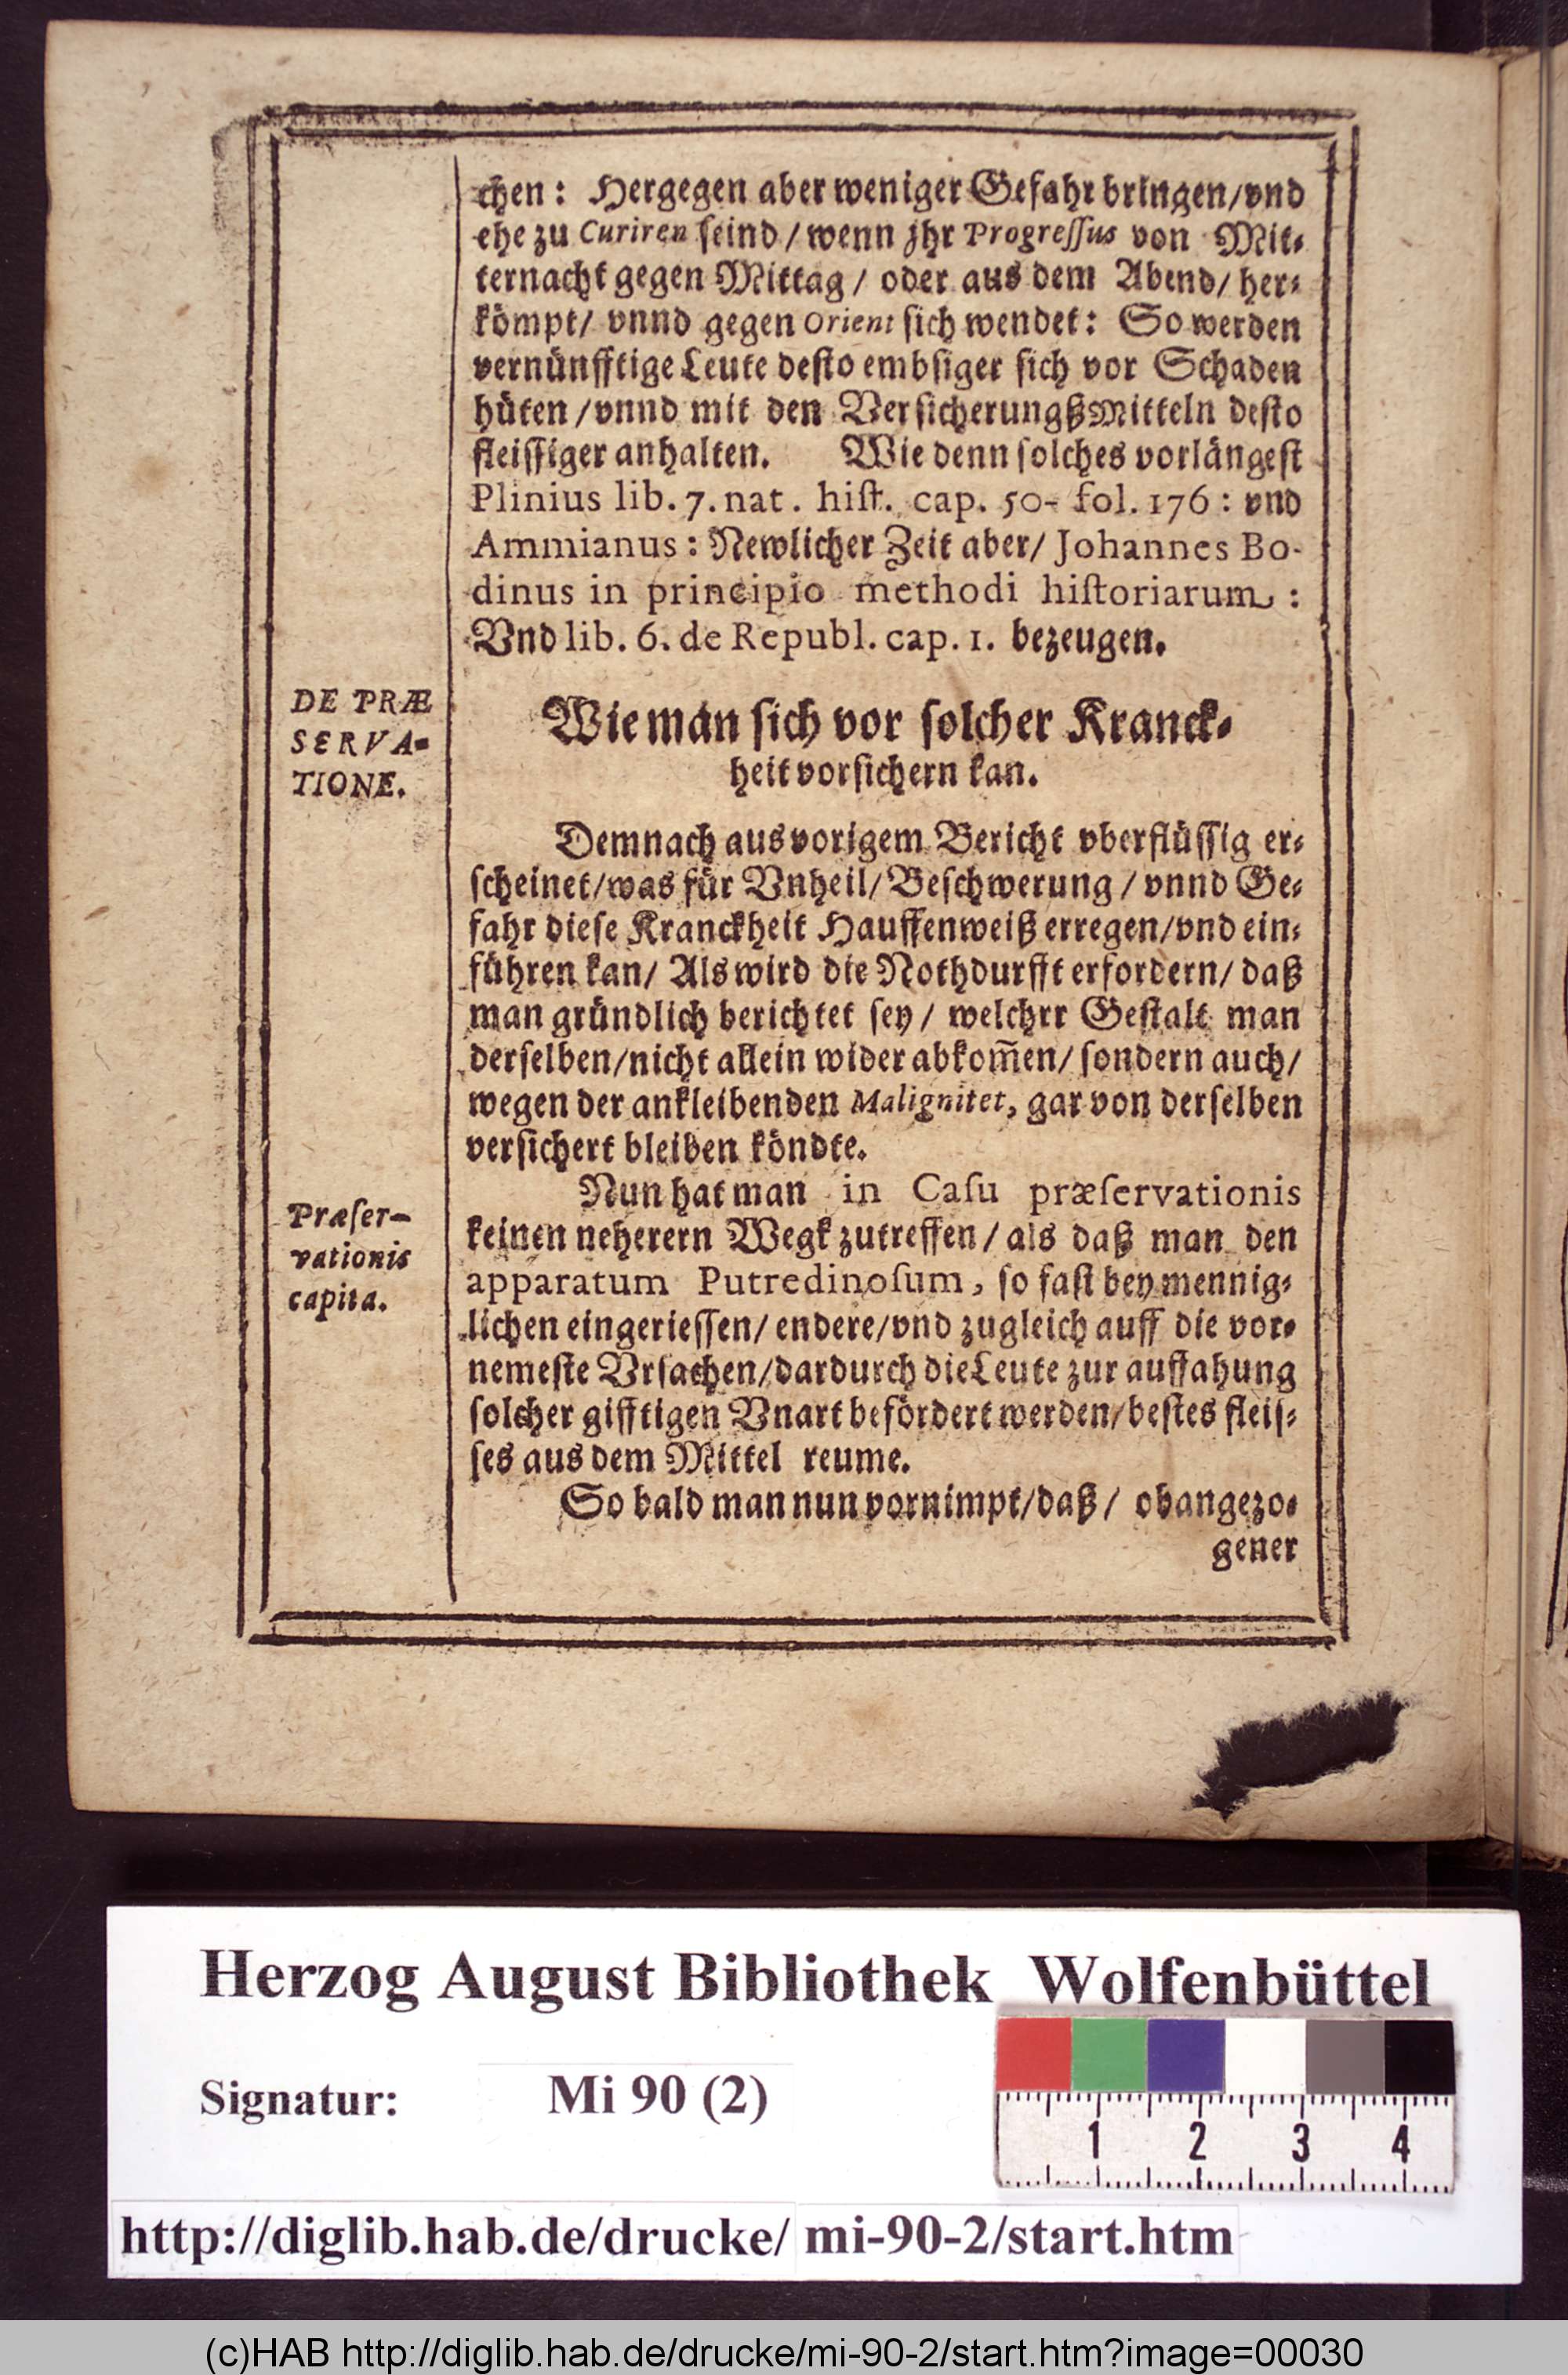 chen: Hergegen aber weniger Gefahr bringen/vnd
ehe zu Curiren ſeind/wenn jhr Progreſſus von Mit⸗
ternacht gegen Mittag/ oder aus dem Abend/ her⸗
kömpt/ vnnd gegen Orient ſich wendet: So werden
vernünfftige Leute deſto embſiger ſich vor Schaden
hüten/vnnd mit den VerſicherungßMitteln deſto
fleiſſiger anhalten. Wie denn ſolches vorlängeſt
Plinius lib. 7. nat. hiſt. cap. 50- fol. 176: vnd
Ammianus: Newlicher Zeit aber/ Johannes Bo-
dinus in principio methodi hiſtoriarum:
Vnd lib. 6. de Republ. cap. 1. bezeugen.
DE PRÆ
SERVA⸗
TIONE.
Wie man ſich vor ſolcher Kranck⸗
heit vorſichern kan.
Demnach aus vorigem Bericht vberflüſſig er⸗
ſcheinet/was für Vnheil/ Beſchwerung/ vnnd Ge⸗
fahr dieſe Kranckheit Hauffenweiß erregen/vnd ein⸗
führen kan/ Als wird die Nothdurfft erfordern/ daß
man gründlich berichtet ſey/ welchrr Geſtalt man
derſelben/nicht allein wider abkom̃en/ ſondern auch/
wegen der ankleibenden Malignitet, gar von derſelben
verſichert bleiben köndte.
Præſer-
vationis
capita.
Nun hat man in Caſu præſervationis
keinen neherern Wegk zutreffen/ als daß man den
apparatum Putredinoſum, ſo faſt bey mennig⸗
lichen eingerieſſen/ endere/vnd zugleich auff die vor⸗
nemeſte Vrſachen/dardurch die Leute zur auffahung
ſolcher gifftigen Vnart befördert werden/beſtes fleiſ⸗
ſes aus dem Mittel reume.
So bald man nun vornimpt/daß/ obangezo⸗
gener
Herzog August Bibliothek Wolfenbüttel
Signatur: Mi 90 (2)
1 2 3 4
http://diglib.hab.de/drucke/ mi-90-2/start.htm
(c)HAB http://diglib.hab.de/drucke/mi-90-2/start.htm?image=00030